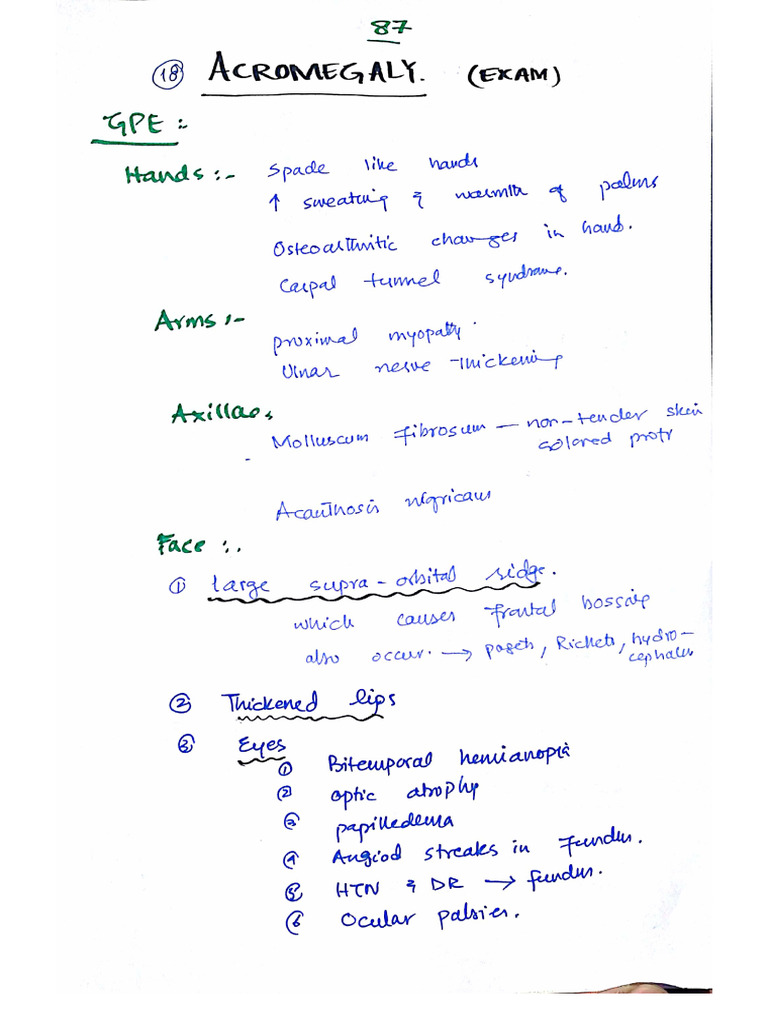 87
(18) ACROMEGALY. (EXAM)
GPE :-
Hands :- Spade like hands
↑ sweating & warmth of palms
Osteoarthritic changes in hand.
Carpal tunnel syndrome.
Arms :-
proximal myopathy.
Ulnar nerve thickening
Axillae,
Molluscum fibrosum — non-tender skin
colored protr
Acanthosis nigricans
Face :.
① large supra-orbital ridge.
which causes frontal bossing
also occur. → pagets, Rickets, hydro-
cephalus
② Thickened lips
③ Eyes
① Bitemporal hemianopia
② optic atrophy
③ papilledema
④ Angiod streaks in fundus.
⑤ HTN & DR → fundus.
⑥ Ocular palsies.